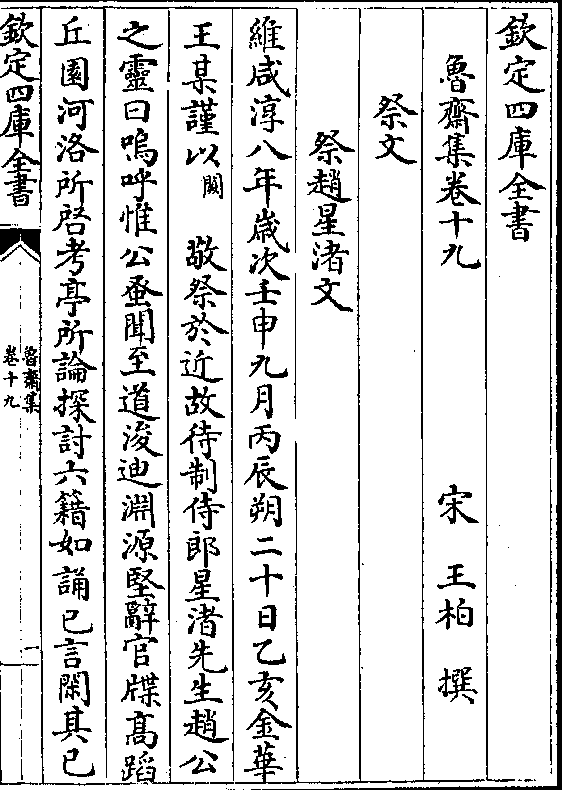 欽定四庫全書
魯齋集卷十九
宋　王柏　撰
祭文
祭趙星渚文
維咸淳八年歲次壬申九月丙辰朔二十日乙亥金華
王某謹以闕　敬祭於近故待制侍郎星渚先生趙公
之靈曰嗚呼惟公蚤聞至道浚迪淵源堅辭官牒髙蹈
丘園河洛所啓考亭所論探討六籍如誦已言閑其已
欽定四庫全書
魯齋集
卷十九
一